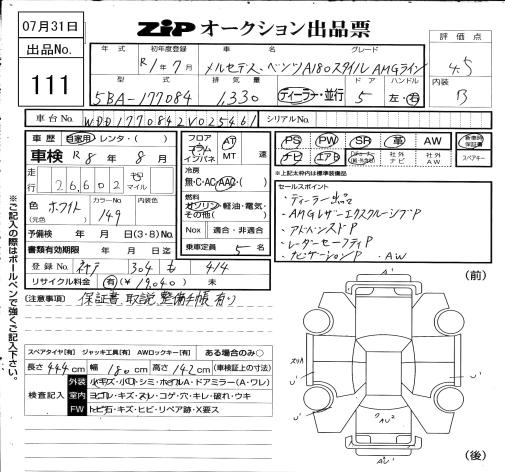 07月31日
出品No.
111
ZiP オークション出品票
評価点
4.5
内装
B
年式 初年度登録 車名 グレード
R1年7月 メルセデス・ベンツ A180スタイル AMGライン
型式 排気量 ドア ハンドル
5BA-177084 1,330 ディーラー・並行 5 左・右
車台No. WDD1770842V025461 シリアルNo.
車歴 自家用・レンタ・( )
車検 R8年8月
走行 26,602 キロ マイル
色 ホワイト (元色) カラーNo. 149 内装色
予備検 年 月 日(3・8)No.
書類有効期限 年 月 日
登録No. 304 も 414
リサイクル料金 有(¥19,040) 未
フロア コラム インパネ AT MT 速
冷房 無・C・AC・AAC・( )
燃料 ガソリン・軽油・電気・その他( )
Nox 適合・非適合
乗車定員 5名
PS PW SR 革 AW 新車時保証書
ナビ エアB 社外ナビ 社外AW スペアキー
※上記太枠は標準装備品
セールスポイント
・ディーラー出品
・AMGレザーエクスクルーシブP
・アドバンスドP
・レーダーセーフティP
・ナビゲーションP ・AW
(注意事項) 保証書、取説、整備手帳有り
※ご記入の際はボールペンで強くご記入下さい。
スペアタイヤ[有] ジャッキ工具[有] AWロックキー[有] ある場合のみ○
長さ 444cm 幅 180cm 高さ 142cm (車検証上の寸法)
検査記入
外装 小キズ・小凹・シミ・ホイルA・ドアミラー(A・ワレ)
室内 ヨゴレ・キズ・スレ・コゲ・穴・キレ・破れ・ウキ
FW トビ石・キズ・ヒビ・リペア跡・X要ス
(前)
(後)
スリA